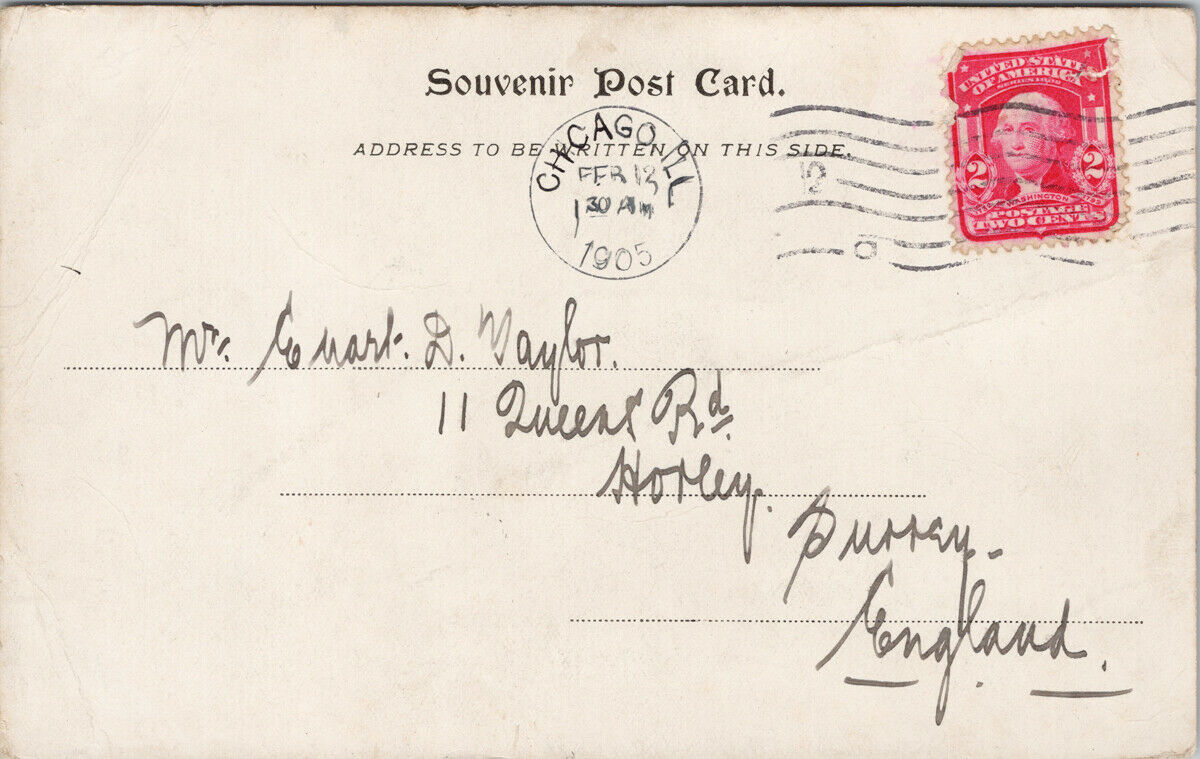 Souvenir Post Card.
ADDRESS TO BE WRITTEN ON THIS SIDE.
CHICAGO, ILL
FEB 13
1 30 AM
1905
UNITED STATES
OF AMERICA
SERIES 1902
2 2
WASHINGTON
POSTAGE
TWO CENTS
Mr. Ewart. D. Taylor.
11 Queens Rd.
Horley.
Surrey.
England.